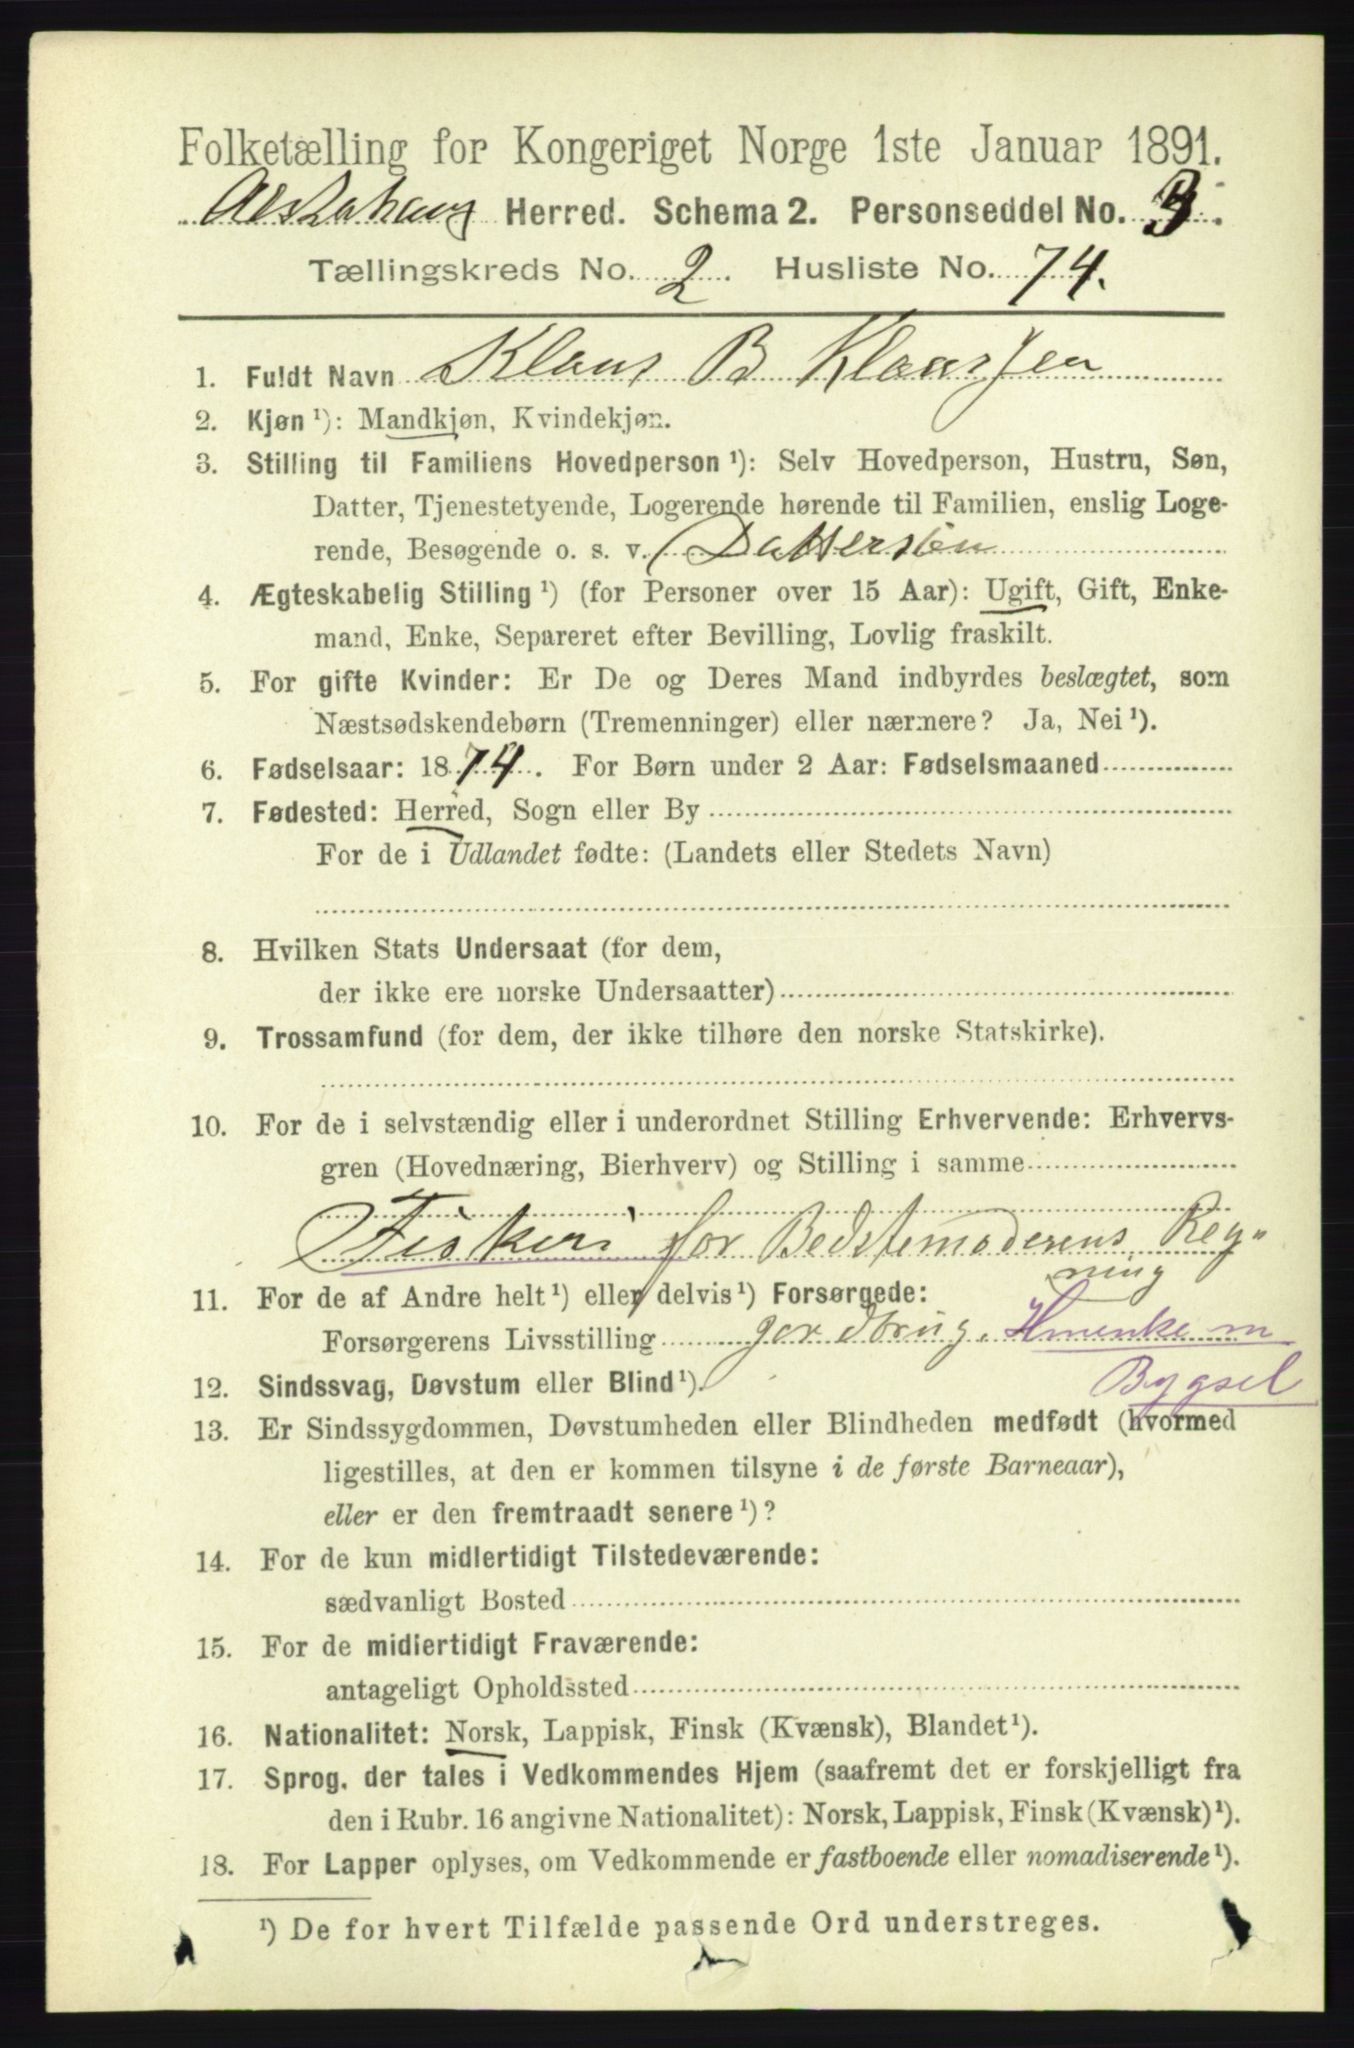 Folketælling for Kongeriget Norge 1ste Januar 1891.
Alstahaug Herred. Schema 2. Personseddel No. 3.
Tællingskreds No. 2. Husliste No. 74.
1. Fuldt Navn Klaus B Klaussen
2. Kjøn ¹): Mandkjøn, Kvindekjøn.
3. Stilling til Familiens Hovedperson ¹): Selv Hovedperson, Hustru, Søn,
Datter, Tjenestetyende, Logerende hørende til Familien, enslig Loge-
rende, Besøgende o. s. v. Dattersøn
4. Ægteskabelig Stilling ¹) (for Personer over 15 Aar): Ugift, Gift, Enke-
mand, Enke, Separeret efter Bevilling, Lovlig fraskilt.
5. For gifte Kvinder: Er De og Deres Mand indbyrdes beslægtet, som
Næstsødskendebørn (Tremenninger) eller nærmere? Ja, Nei ¹).
6. Fødselsaar: 1874. For Børn under 2 Aar: Fødselsmaaned
7. Fødested: Herred, Sogn eller By
For de i Udlandet fødte: (Landets eller Stedets Navn)
8. Hvilken Stats Undersaat (for dem,
der ikke ere norske Undersaatter)
9. Trossamfund (for dem, der ikke tilhøre den norske Statskirke).
10. For de i selvstændig eller i underordnet Stilling Erhvervende: Erhvervs-
gren (Hovednæring, Bierhverv) og Stilling i samme
Fiskeri for Bedstemoderens Reg-
ning
11. For de af Andre helt ¹) eller delvis ¹) Forsørgede:
Forsørgerens Livsstilling Jordbrug. Hmenke m
Bygsel
12. Sindssvag, Døvstum eller Blind ¹).
13. Er Sindssygdommen, Døvstumheden eller Blindheden medfødt (hvormed
ligestilles, at den er kommen tilsyne i de første Barneaar),
eller er den fremtraadt senere ¹)?
14. For de kun midlertidigt Tilstedeværende:
sædvanligt Bosted
15. For de midlertidigt Fraværende:
antageligt Opholdssted
16. Nationalitet: Norsk, Lappisk, Finsk (Kvænsk), Blandet ¹).
17. Sprog, der tales i Vedkommendes Hjem (saafremt det er forskjelligt fra
den i Rubr. 16 angivne Nationalitet): Norsk, Lappisk, Finsk (Kvænsk) ¹).
18. For Lapper oplyses, om Vedkommende er fastboende eller nomadiserende ¹).
¹) De for hvert Tilfælde passende Ord understreges.